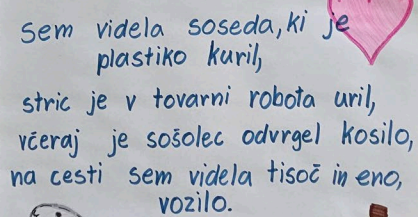 Sem videla soseda, ki je
plastiko kuril,
stric je v tovarni robota uril,
včeraj je sošolec odvrgel kosilo,
na cesti sem videla tisoč in eno,
vozilo.